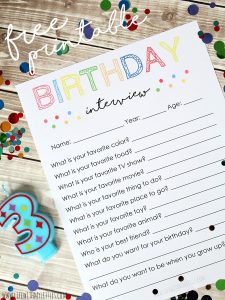 free
printable
BIRTHDAY
interview
Name:
Year: Age:
What is your favorite color?
What is your favorite food?
What is your favorite TV show?
What is your favorite movie?
What is your favorite thing to do?
What is your favorite place to go?
What is your favorite toy?
What is your favorite animal?
Who is your best friend?
What do you want for your birthday?
What do you want to be when you grow up?
3